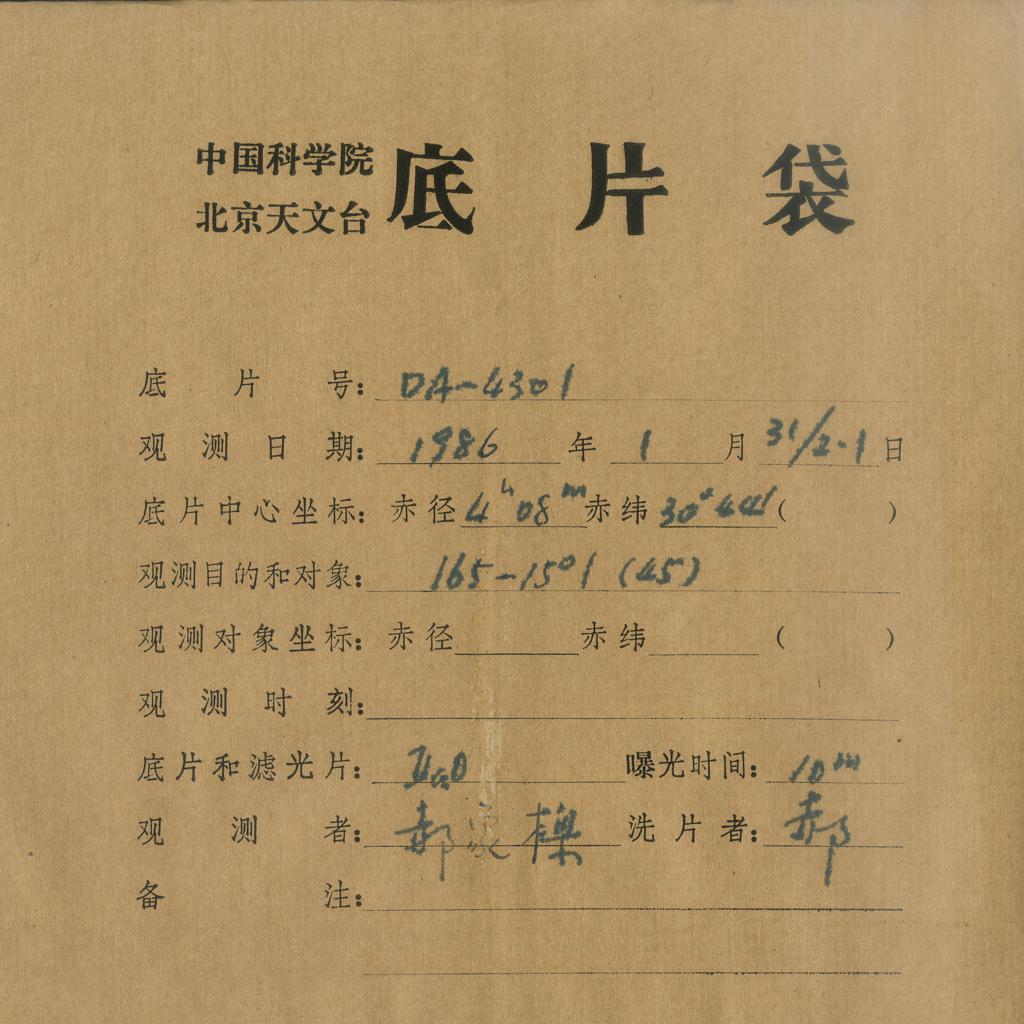 中国科学院
北京天文台
底片袋
底片号: DA-4301
观测日期: 1986年1月31/2.1日
底片中心坐标: 赤径4ʰ08ᵐ赤纬30°44'( )
观测目的和对象: 165-1501 (45)
观测对象坐标: 赤径 赤纬 ( )
观测时刻:
底片和滤光片: IIaO 曝光时间: 10ᵐ
观测者: 郝 洗片者: 郝
备注: